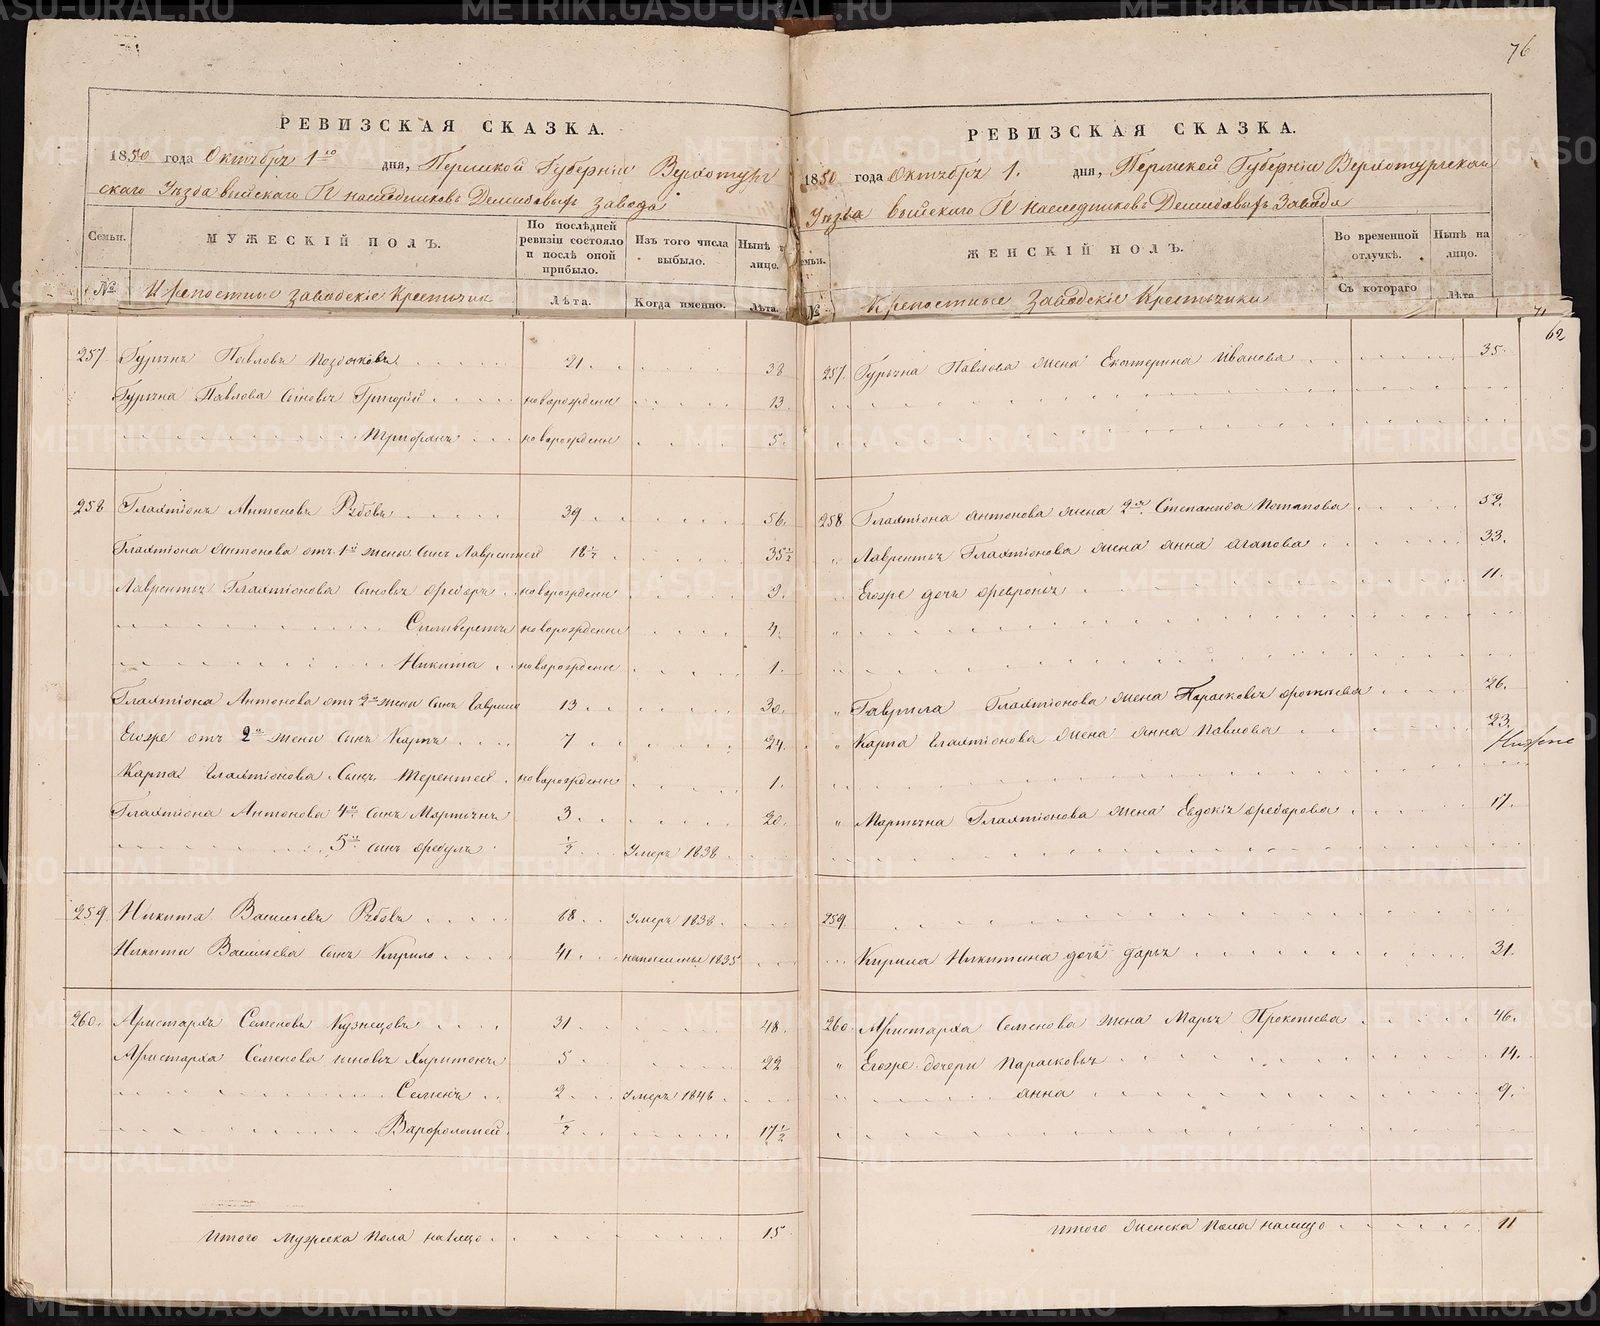 76
РЕВИЗСКАЯ СКАЗКА.
1850 года Октября 1го дня, Пермской Губерніи Верхотур
скаго Уѣзда Выйскаго Гг наследниковъ Демидовыхъ завода
Семьи. МУЖЕСКІЙ ПОЛЪ. По послѣдней ревизіи состояло и послѣ оной прибыло. Изъ того числа выбыло. Нынѣ лицо.
№ Крепостные заводскіе Крестьяне Лѣта. Когда именно. Лѣта.
257 Гурьянъ Павловъ 21 38
Гурьяна Павлова сыновья Григорій новорожденн 13
Трифонъ новорожденн 5
258 Галахтіонъ Антоновъ Рябовъ 39 56
Галахтіона Антонова отъ 1й жены сынъ Лаврентей 18½ 35½
Лаврентья Галахтіонова сыновья Федоръ новорожденн 9
Селиверстъ новорожденн 4
Никита новорожденн 1
Галахтіона Антонова отъ 2й жены сынъ Гаврило 13 30
Егоже отъ 2й жены сынъ Карпъ 7 24
Карпа Галахтіонова сынъ Терентей новорожденн 1
Галахтіона Антонова 4й сынъ Мартынъ 3 20
5й сынъ Федулъ ½ Умеръ 1838
259 Никита Васильевъ Рябовъ 68 Умеръ 1838
Никиты Васильева сынъ Кирило 41 1835
260 Аристархъ Семеновъ Кузнецовъ 31 48
Аристарха Семенова сыновья Харитонъ 5 22
Семенъ 2 Умеръ 1846
Варфоломей ½ 17½
Итого Мужеска Пола налицо 15
РЕВИЗСКАЯ СКАЗКА.
1850 года Октября 1. дня, Пермской Губерніи Верхотурскаго
Уѣзда Выйскаго Гг Наследниковъ Демидовыхъ Завода
емьи. ЖЕНСКІЙ ПОЛЪ. Во временной отлучкѣ. Нынѣ на лицо.
№ Крепостные Заводскіе Крестьянки Съ котораго Лѣта
71
62
257 Гурьяна Павлова жена Екатерина Иванова 35
258 Галахтіона Антонова жена 2я Степанида Потапова 52
Лаврентья Галахтіонова жена Анна Агапова 33
Егоже дочь Февронья 11
Гаврила Галахтіонова жена Парасковья 26
Карпа Галахтіонова жена Анна Павлова 23
Мартына Галахтіонова жена Евдокія Федорова 17
259
Кирила Никитина дочь Дарья 31
260 Аристарха Семенова жена Марья Прокопьева 46
Егоже дочери Парасковья 14
Анна 9
Итого Женска Пола налицо 11
METRIKI.GASO-URAL.RU